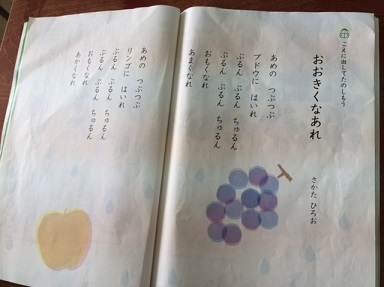 こえに出してたのしもう
おおきくなあれ
さかた ひろお
あめの つぶつぶ
ブドウに はいれ
ぷるん ぷるん ちゅるん
ぷるん ぷるん ちゅるん
おもくなれ
あまくなれ
あめの つぶつぶ
リンゴに はいれ
ぷるん ぷるん ちゅるん
ぷるん ぷるん ちゅるん
おもくなれ
あかくなれ